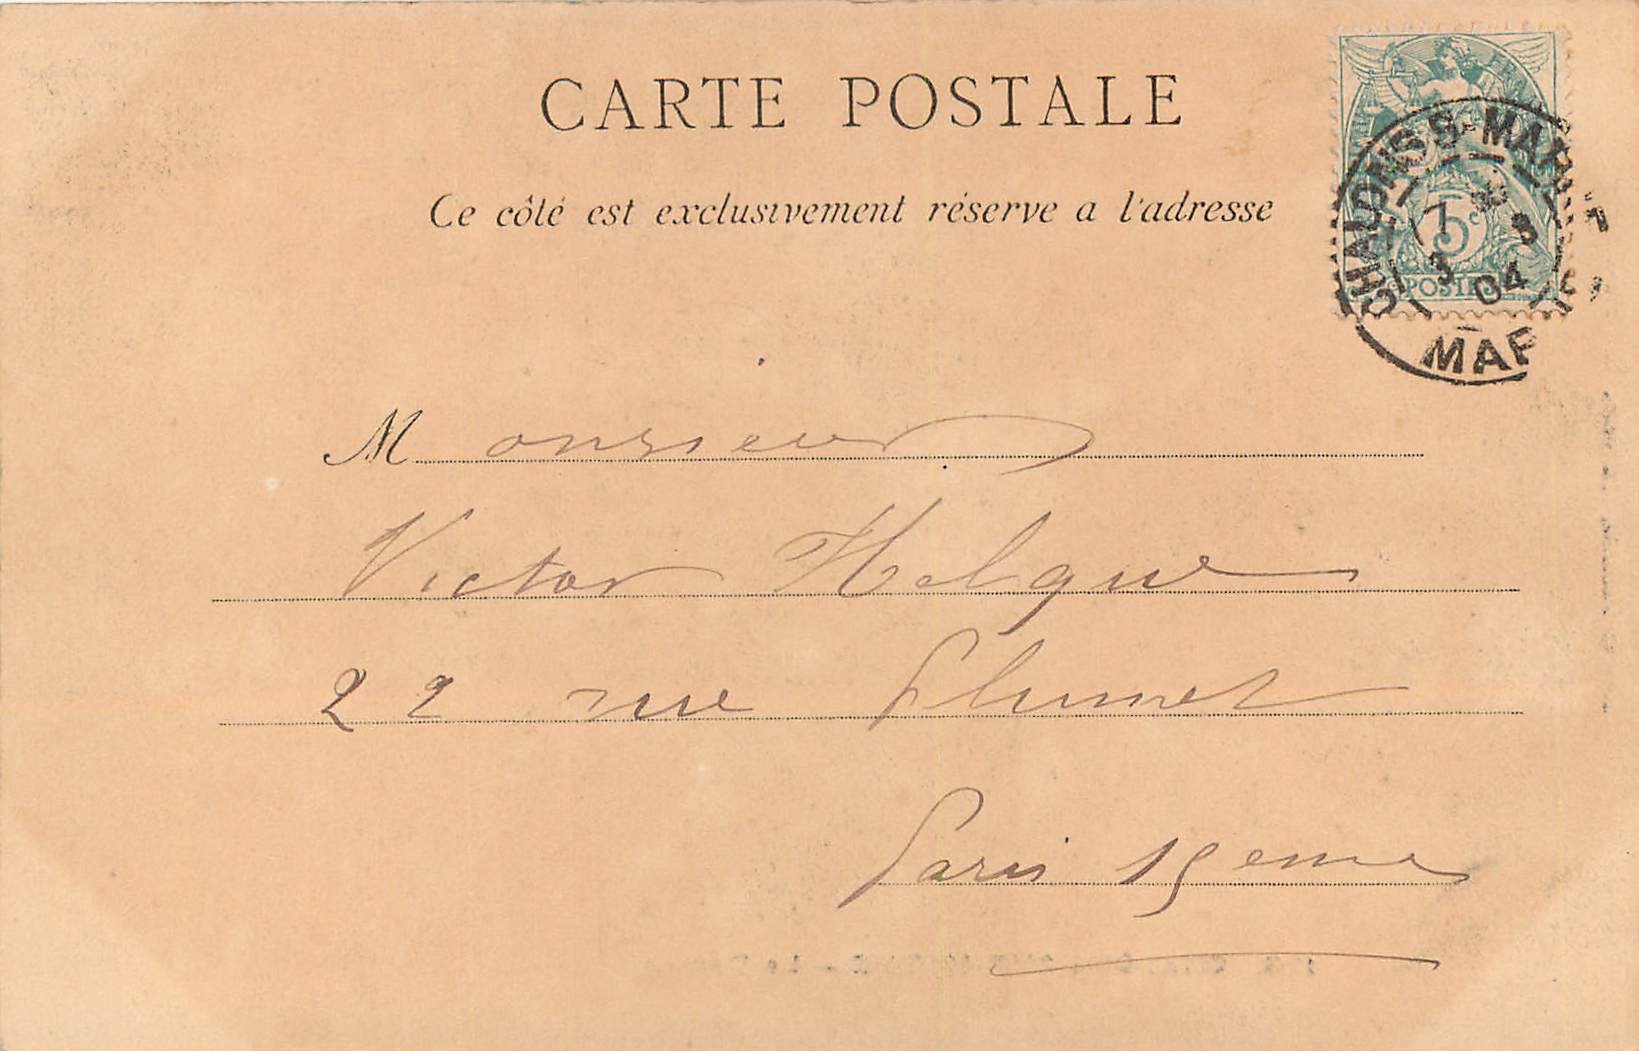 CARTE POSTALE
Ce côté est exclusivement réservé a l'adresse
CHALONS-S-MAR
7
3 04
MAR
5c
POSTES
Monsieur
Victor Helque
22 rue Plumet
Paris 15eme